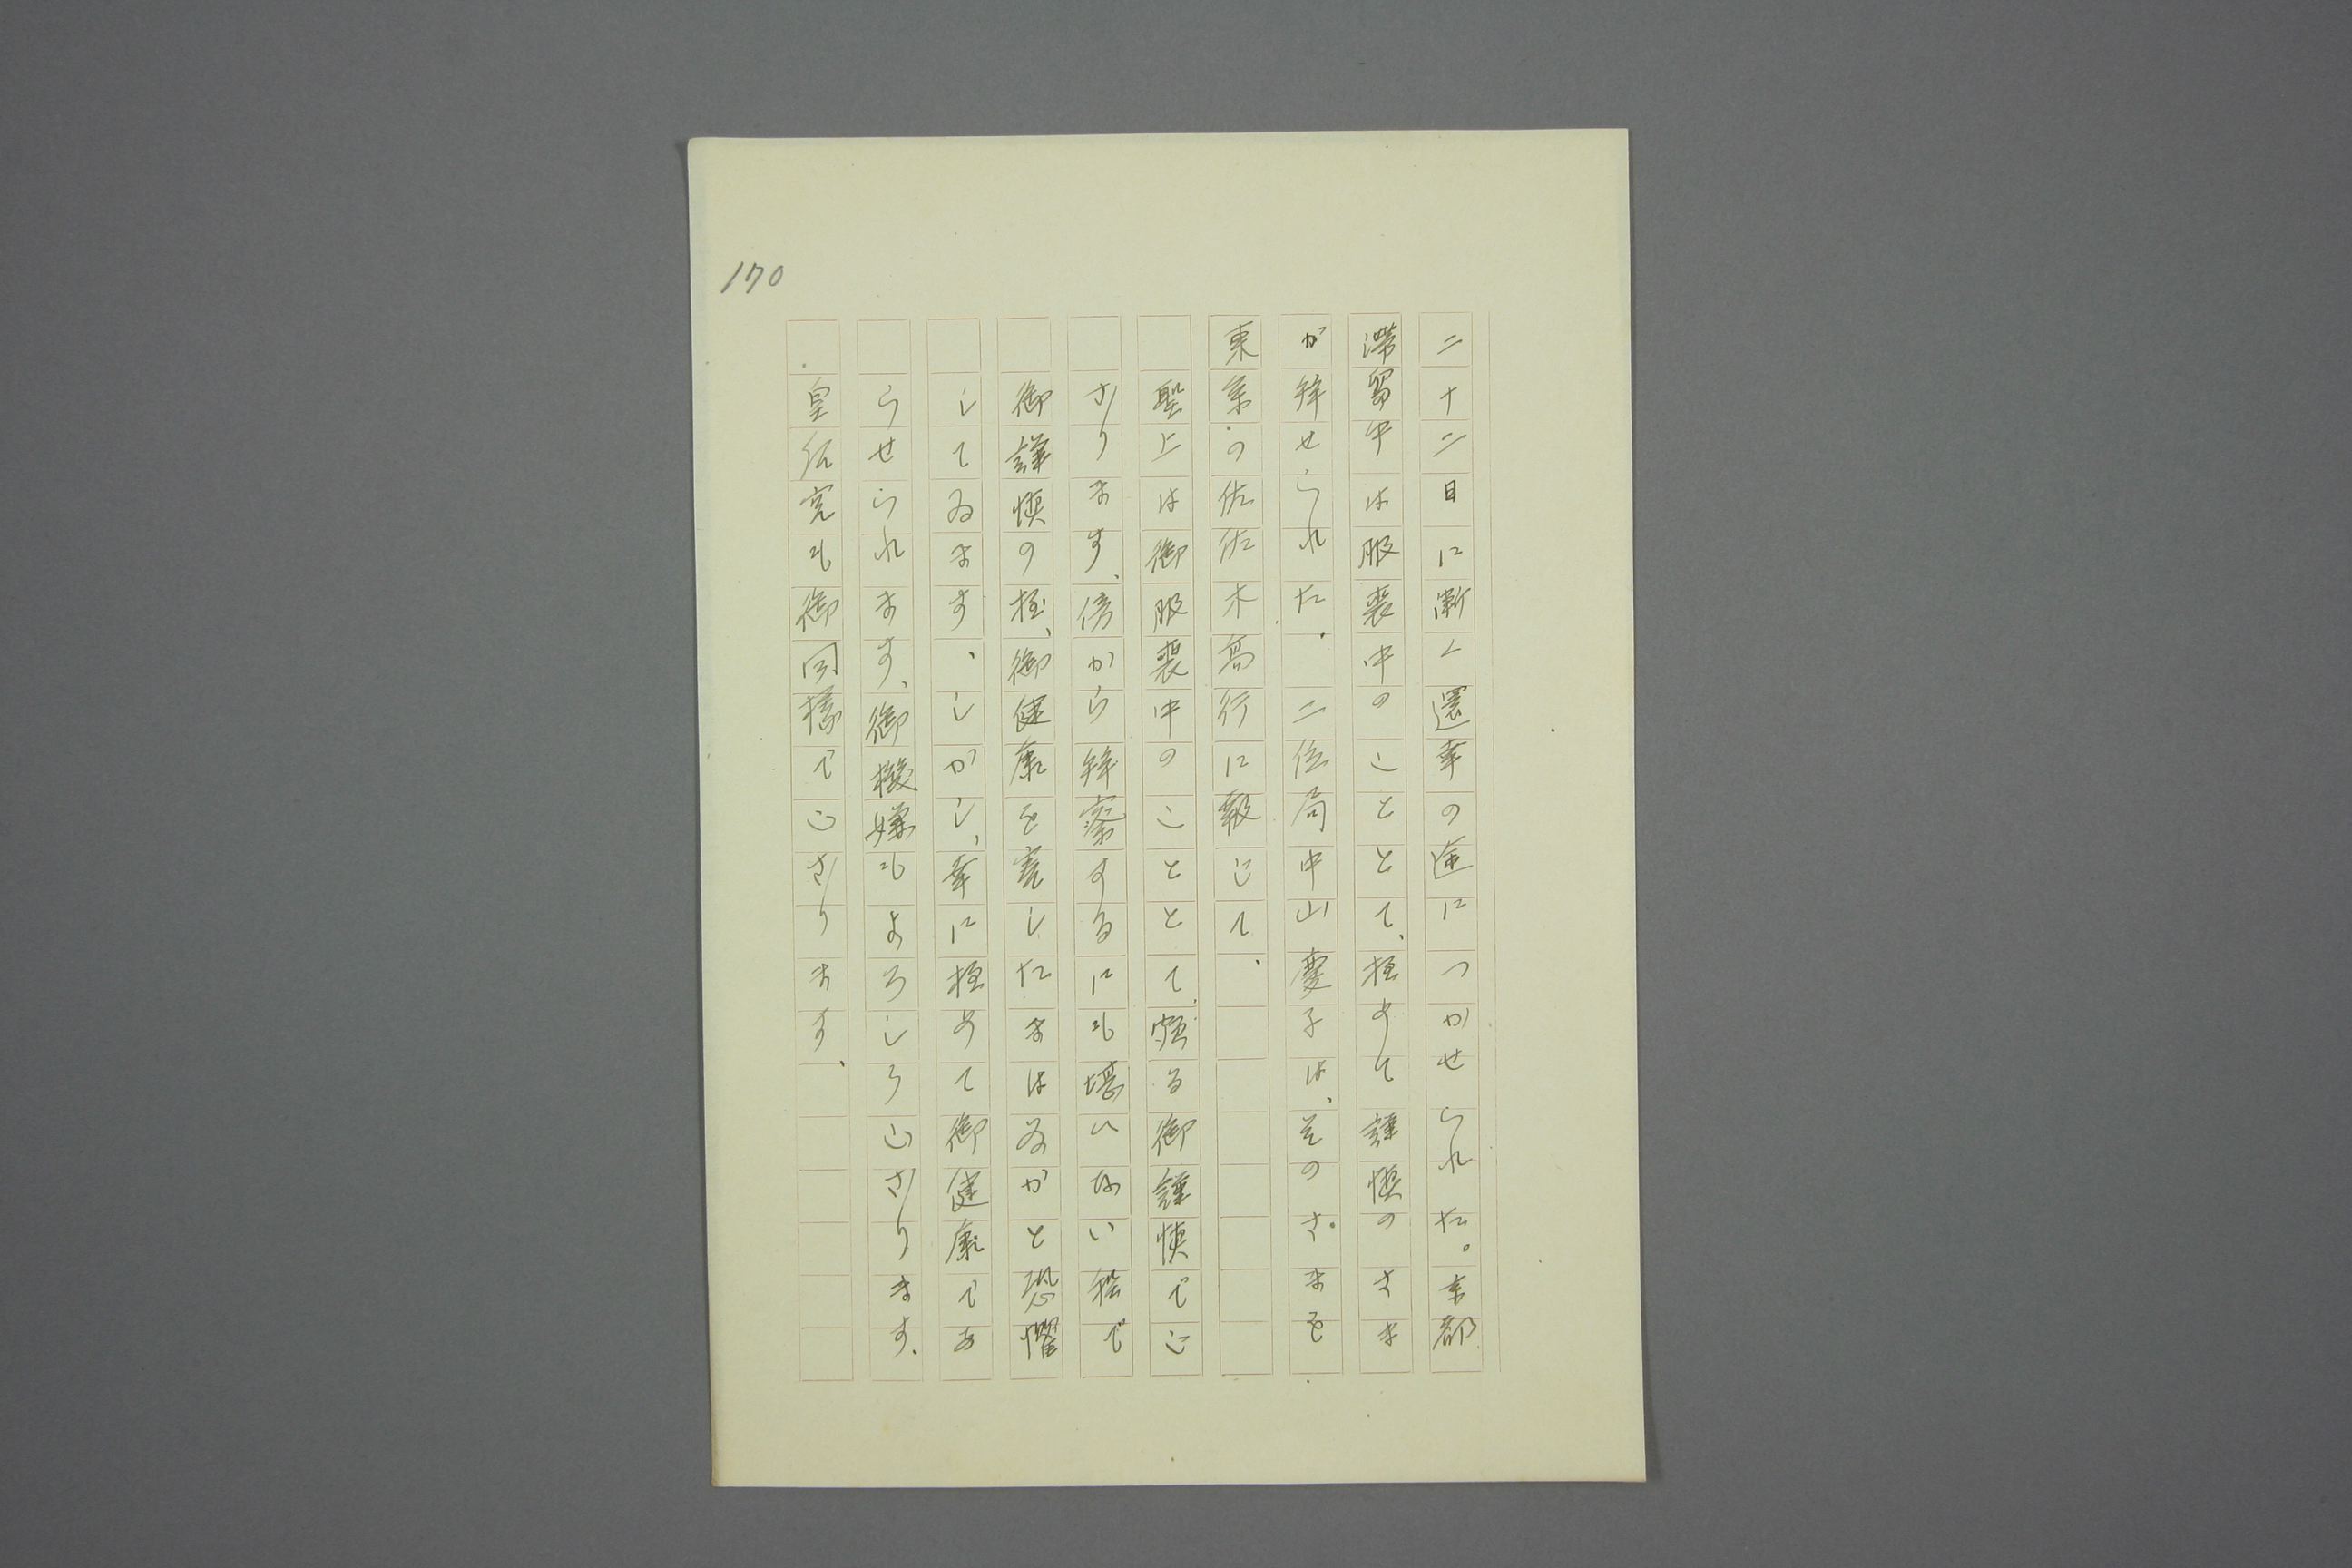 170
二十二日に漸く還幸の途につかせられた。京都
滞留中は服喪中のこととて、極めて謹慎のさま
が拝せられた。二位局中山慶子は、そのさまを
東京の佐佐木高行に報じて、
聖上は御服喪中のこととて、頗る御謹慎でご
ざります、傍から拝察するにも堪へない程で
御謹慎の極、御健康を害したまはぬかと恐懼
してゐます、しかし、幸に極めて御健康であ
らせられます、御機嫌もよろしうござります、
皇后宮も御同様でござります、